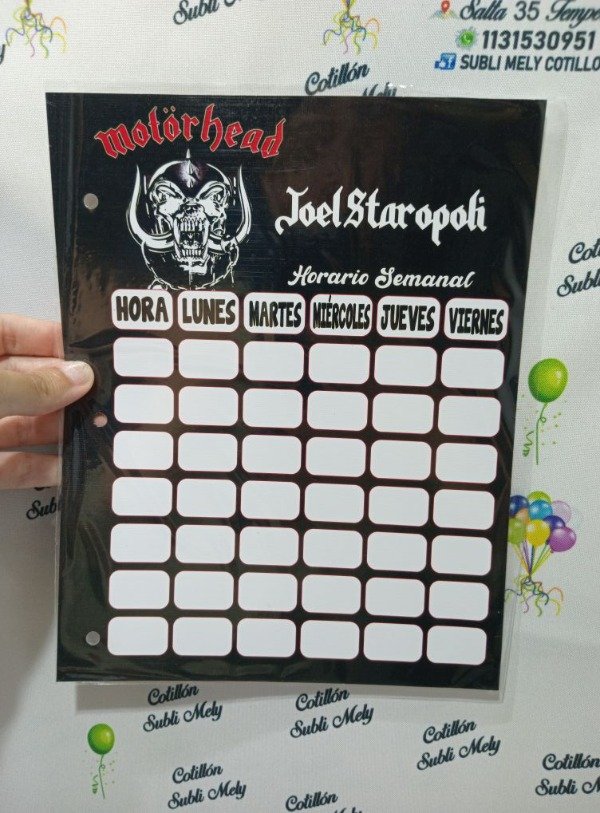 Subli Mely
Salta 35 Tempe
1131530951
SUBLI MELY COTILLO
Cotillón
Mely
motörhead
Joel Staropoli
Horario Semanal
HORA LUNES MARTES MIÉRCOLES JUEVES VIERNES
Coti
Subli
Subl
Cotillón
Subli Mely
Cotillón
Subli Mely
Cotillón
Subli Mely
Cotillón
Subli Mely
Cotillón
Cotillón
Subli Mely